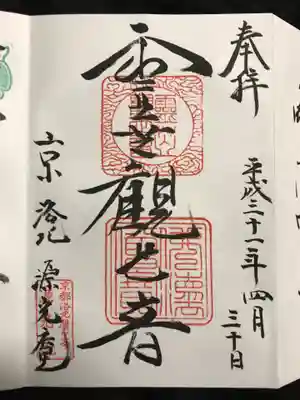 奉拝
平成三十一年四月
三十日
霊芝観世音
京洛北
源光庵